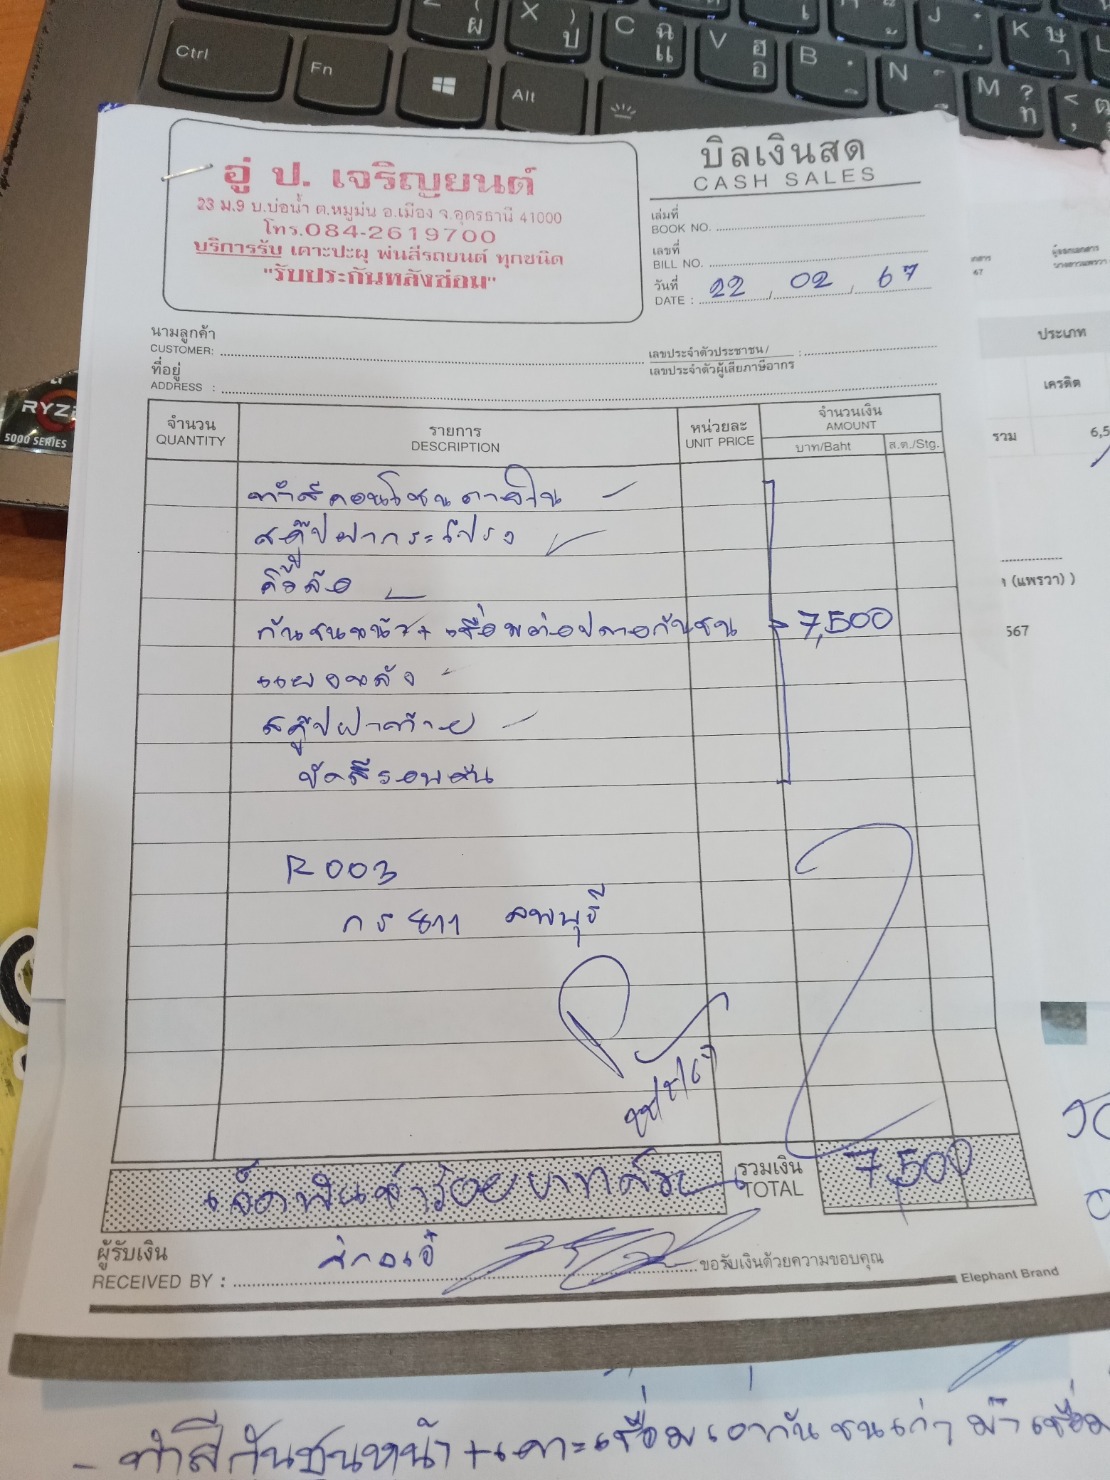 Ctrl
Fn
Alt
Z ผ
X ) ป
C ฉ แ
V ฮ อ
B
N
J
K ษ า
M ? ท
L
RYZ
5000 SERIES
อู่ ป. เจริญยนต์
23 ม.9 บ.บ่อน้ำ ต.หมูม่น อ.เมือง จ.อุดรธานี 41000
โทร.084-2619700
บริการรับ เคาะปะผุ พ่นสีรถยนต์ ทุกชนิด
"รับประกันหลังซ่อม"
บิลเงินสด
CASH SALES
เล่มที่
BOOK NO.
เลขที่
BILL NO.
วันที่
DATE : 22 02 67
นามลูกค้า
CUSTOMER:
เลขประจำตัวประชาชน/ :
เลขประจำตัวผู้เสียภาษีอากร
ที่อยู่
ADDRESS :
จำนวน
QUANTITY
รายการ
DESCRIPTION
หน่วยละ
UNIT PRICE
จำนวนเงิน
AMOUNT
บาท/Baht
ส.ต./Stg.
ทำสีคอนโซนภายใน
สคู๊ปฝากระโปรง
คิ้วล้อ
กันชนหน้า + เชื่อมต่อปลายกันชน 7,500
แผงหลัง
สคู๊ปฝาท้าย
ขัดสีรอบคัน
R003
กร 811 ลพบุรี
เจ็ดพันห้าร้อยบาทถ้วน
รวมเงิน
TOTAL
7,500
ผู้รับเงิน
RECEIVED BY :
ขอรับเงินด้วยความขอบคุณ
Elephant Brand
ประเภท
เครดิต
รวม 6,5
(แพรวา) )
567
- ทำสีกันชนหน้า + เคาะเชื่อมเอากันชนเก่ามาเชื่อม